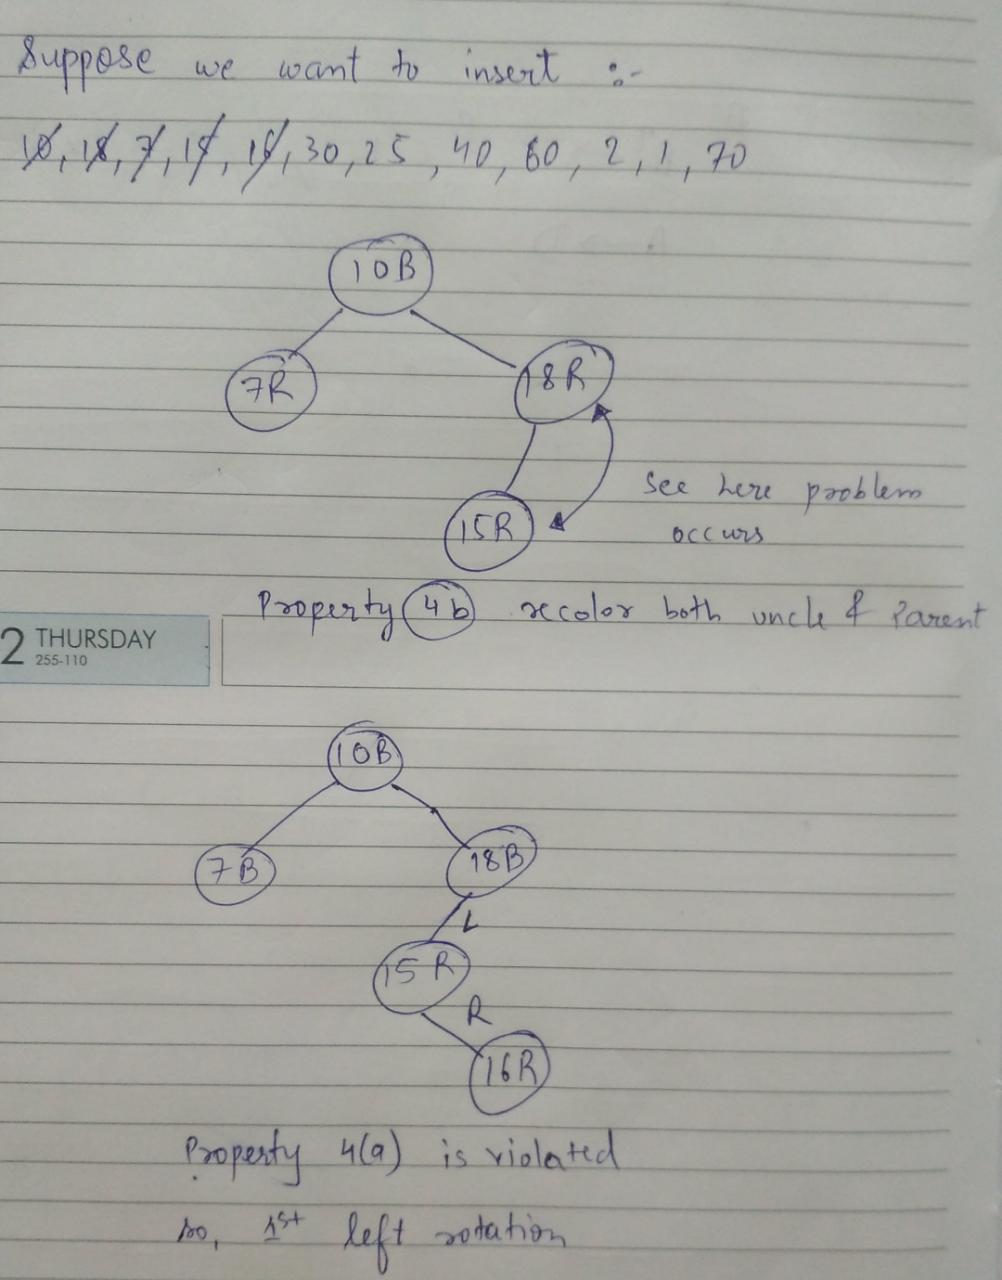 Suppose we want to insert :-
10, 18, 7, 15, 16, 30, 25, 40, 60, 2, 1, 70
10B
7R
18R
15R
See here problem
occurs
Property 4b recolor both uncle & Parent
2 THURSDAY
255-110
10B
7B
18B
L
15R
R
16R
Property 4(a) is violated
so, 1st left rotation